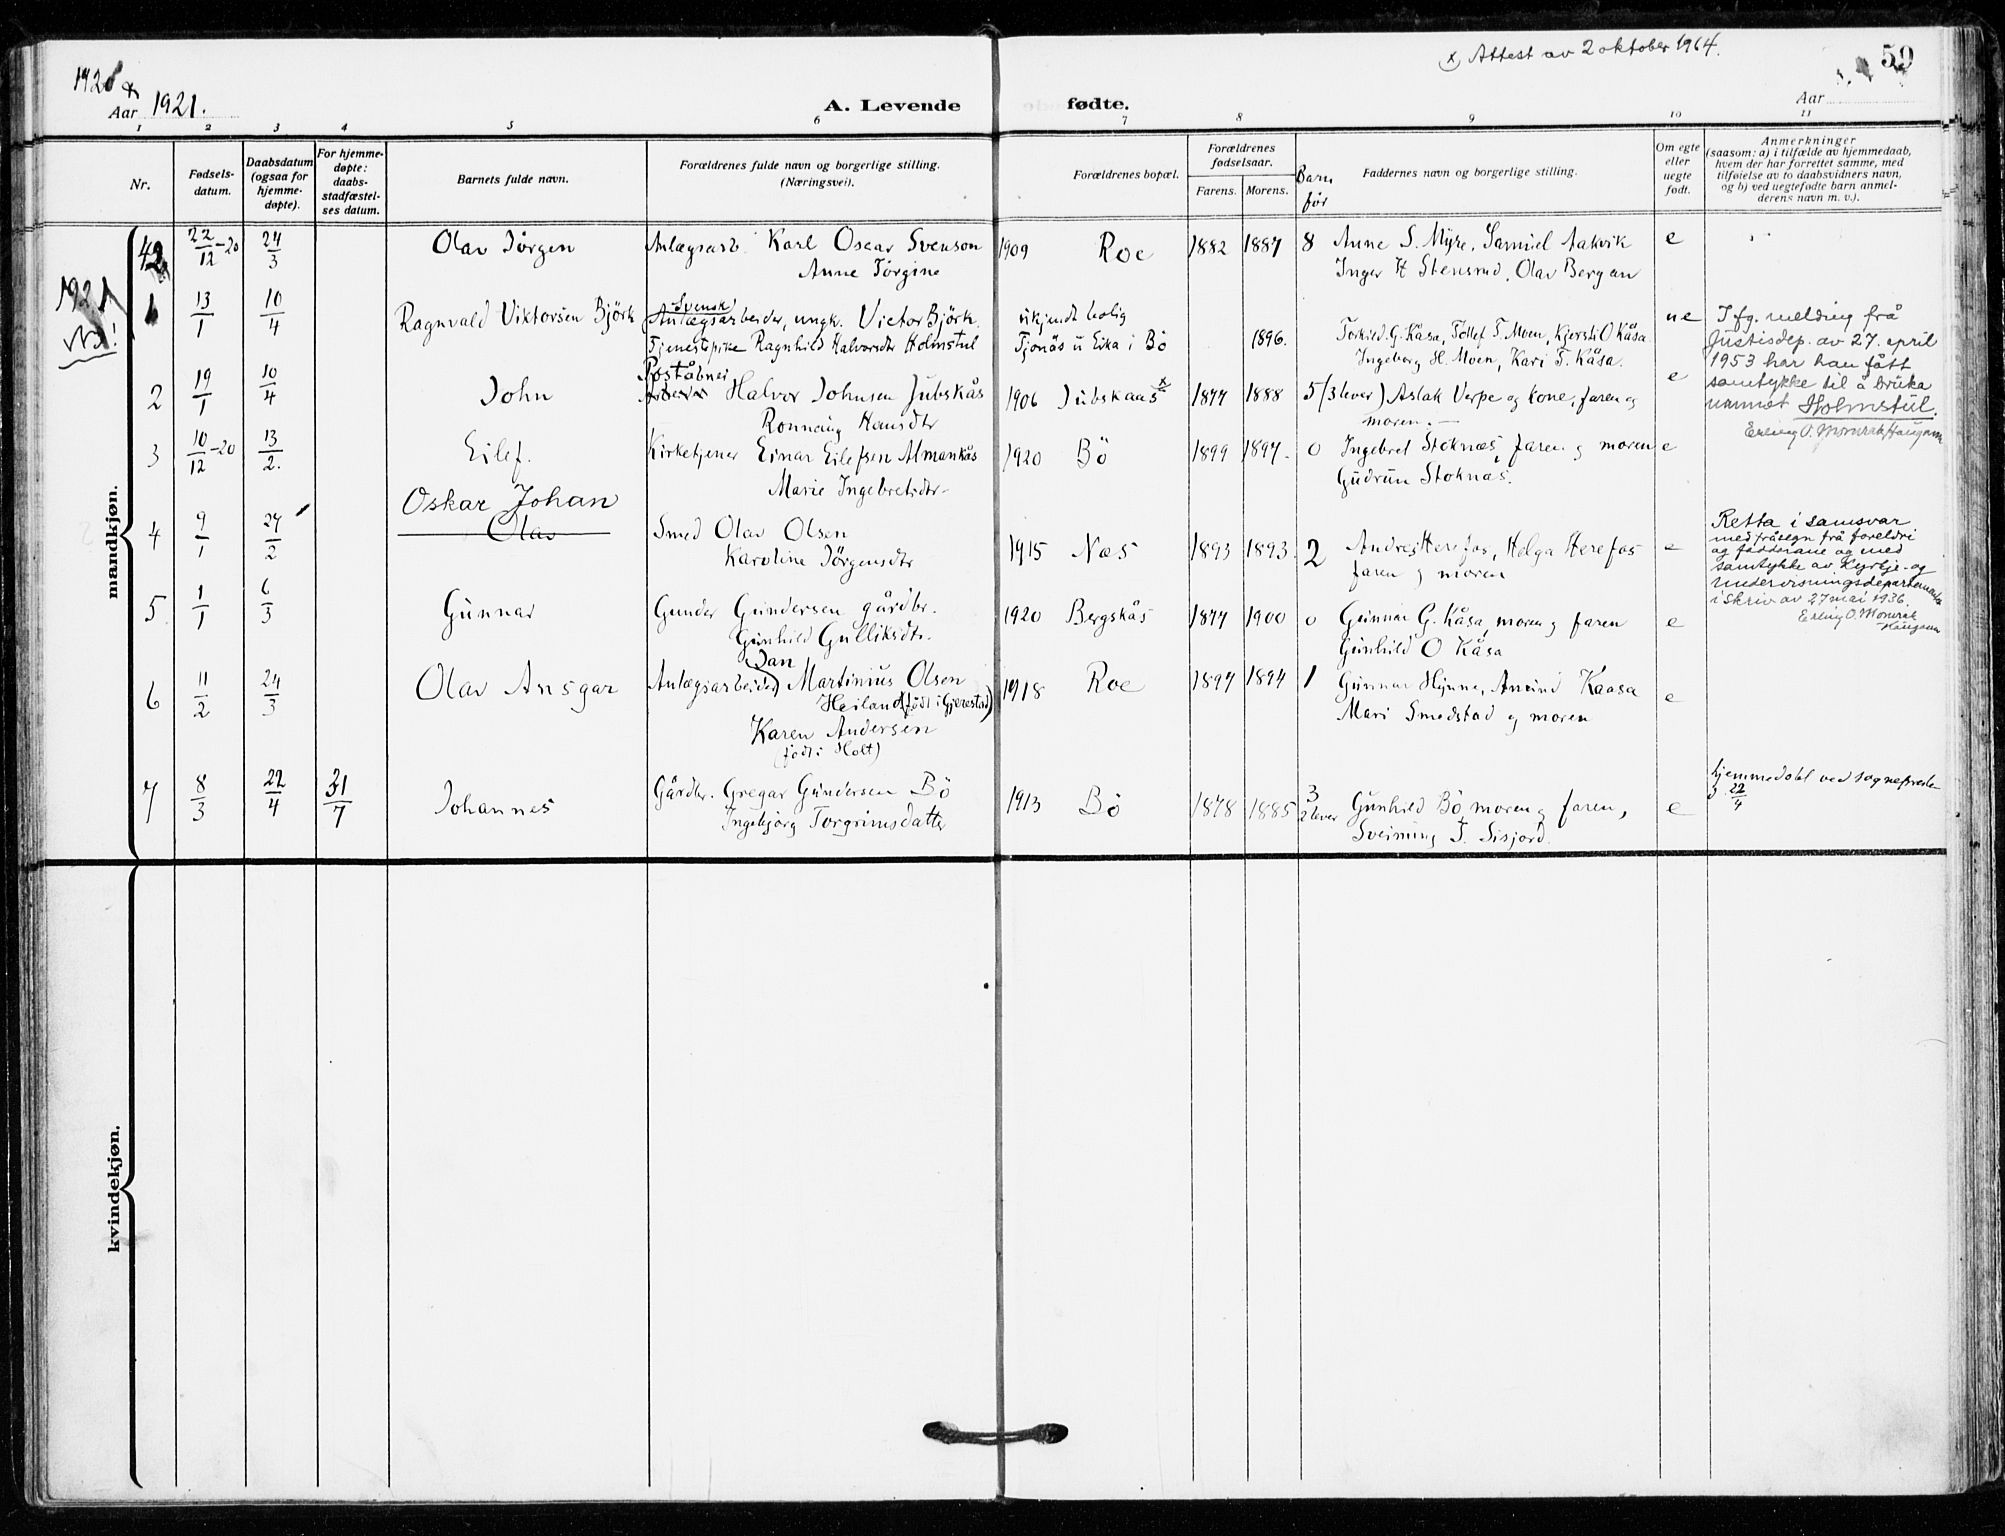 x) Attest av 2 oktober 1964.
59
1920 &
Aar 1921.
A. Levende fødte.
Aar
1 2 3 4 5 6 7 8 9 10 11
Nr.
Fødsels-
datum.
Daabsdatum
(ogsaa for
hjemme-
døpte).
For hjemme-
døpte:
daabs-
stadfæstel-
ses datum.
Barnets fulde navn.
Forældrenes fulde navn og borgerlige stilling.
(Næringsvei).
Forældrenes bopæl.
Forældrenes
fødselsaar.
Farens. Morens.
Barn
før
Faddernes navn og borgerlige stilling.
Om egte
eller
uegte
født.
Anmerkninger
(saasom: a) i tilfælde av hjemmedaab,
hvem der har forrettet samme, med
tilføielse av to daabsvidners navn,
og b) ved uegtefødte barn anmel-
derens navn m. v.).
mandkjøn.
42 22/12-20 24/3 Olav Jörgen Anlægsarb. Karl Oscar Svenson 1909 Roe 1882 1887 8 Anne S. Myre, Samuel Aakvik e
Anne Jörgine Inger H Stensrud, Olav Bergan
1921
NB!
1 13/1 10/4 Ragnvald Viktorsen Björk Svensk
Anlægsarbeider, ungk. Victor Björk. ukjendt bolig Torkild G. Kåsa, Tollef T. Moen, Kjersti O Kåsa ue
Tjenestepike Ragnhild Halvorsdtr Holmstul Tjonäs u Eika i Bö 1896. Ingeborg H. Moen, Kari T. Kåsa.
I fg. melding frå
Justisdep. av 27. april
1953 har han fått
samtykke til å bruka
namnet Holmstul.
Erling O. Momrak Haugann
2 19/1 10/4 John Poståbner
Arbeider Halvor Johnsen Jubskås 1906 Jubskaas x 1877 1888 5 (3 lever) Aslak Verpe og kone, faren og e
Ronnaug Hansdtr moren.
3 10/12-20 13/2. Eilef. Kirketjener Einar Eilefsen Almankås 1920 Bö 1899 1897. 0 Ingebret Stoknæs, faren og moren e
Marie Ingebretsdtr. Gudrun Stoknæs.
Oskar Johan
4 9/1 27/2 Olav Smed Olav Olsen 1915 Næs 1893 1893. 2 Andreas Herefos, Helga Herefos e
Karoline Jörgensdtr faren og moren
Retta i samsvar
med fråsegn frå foreldri
og fadderane og med
samtykke av Kyrkje- og
undervisningsdepartementet
i skriv av 27 mai 1936.
Erling O. Momrak
Haugann
5 1/1 6/3 Gunnar Gunder Gundersen gårdbr. 1920 Bergskås 1877 1900 0 Gunnar G. Kåsa, moren og faren e
Gunhild Gulliksdtr. Gunhild O Kåsa
6 11/2 24/3 Olav Ansgar Anlægsarbeider Jan Martinius Olsen 1918 Roe 1897 1894 1 Gunnar Hynne, Amund Kaasa e
Heiland (födt i Gjerestad) Mari Smedstad og moren
Karen Andersen
(födt i Holt)
7 8/3 22/4 31/7 Johannes Gårdbr. Gregar Gundersen Bö 1913 Bö 1878 1885 3
2 lever Gunhild Bö, moren og faren, e
Ingebjörg Torgrimsdatter Sveinung T. Sisjord.
hjemmedöbt ved sogneprest
22/4
kvindekjøn.